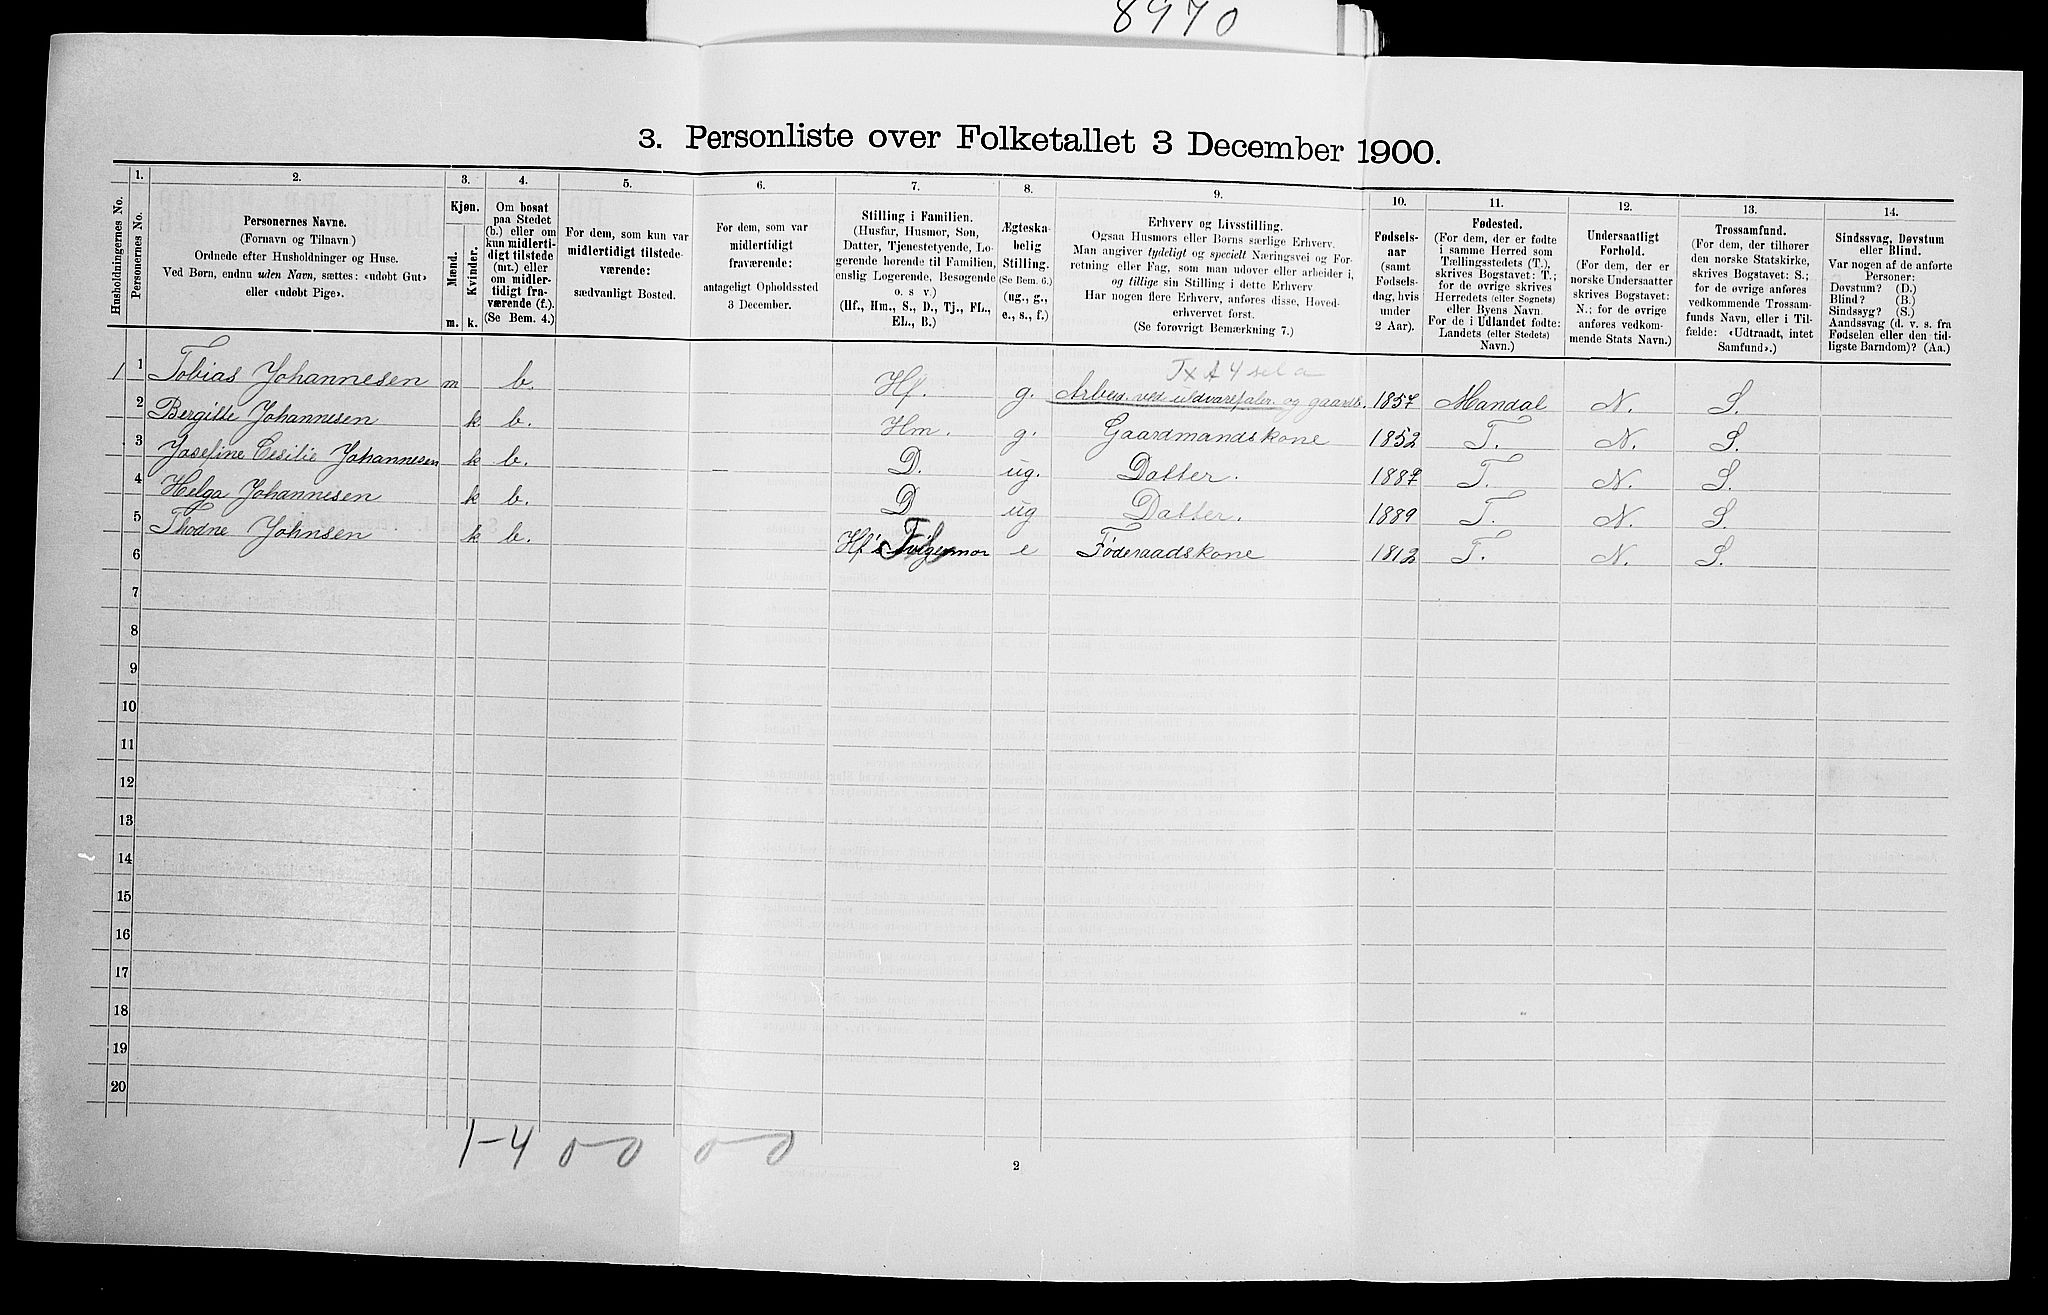 8970
3. Personliste over Folketallet 3 December 1900.
Husholdningernes No.
1.
Personernes No.
2.
Personernes Navne.
(Fornavn og Tilnavn)
Ordnede efter Husholdninger og Huse.
Ved Børn, endnu uden Navn, sættes: «udøbt Gut»
eller «udøbt Pige».
3.
Kjøn.
Mænd.
Kvinder.
m. k.
4.
Om bosat
paa Stedet
(b.) eller om
kun midlerti-
digt tilstede
(mt.) eller
om midler-
tidigt fra-
værende (f.).
(Se Bem. 4.)
5.
For dem, som kun var
midlertidigt tilstede-
værende:
sædvanligt Bosted.
6.
For dem, som var
midlertidigt
fraværende:
antageligt Opholdssted
3 December.
7.
Stilling i Familien.
(Husfar, Husmor, Søn,
Datter, Tjenestetyende, Lo-
gerende hørende til Familien,
enslig Logerende, Besøgende
o. s. v.)
(Hf., Hm., S., D., Tj., FL.,
EL., B.)
8.
Ægteska-
belig
Stilling.
(Se Bem. 6.)
(ug., g.,
e., s., f.)
9.
Erhverv og Livsstilling.
Ogsaa Husmors eller Børns særlige Erhverv.
Man angiver tydeligt og specielt Næringsvei og For-
retning eller Fag, som man udover eller arbeider i,
og tillige sin Stilling i dette Erhverv
Har nogen flere Erhverv, anføres disse, Hoved-
erhvervet først.
(Se forøvrigt Bemærkning 7.)
10.
Fødsels-
aar
(samt
Fødsels-
dag, hvis
under
2 Aar).
11.
Fødested.
(For dem, der er fødte
i samme Herred som
Tællingsstedets (T.),
skrives Bogstavet: T.;
for de øvrige skrives
Herredets (eller Sognets)
eller Byens Navn.
For de i Udlandet fødte:
Landets (eller Stedets)
Navn.)
12.
Undersaatligt
Forhold.
(For dem, der er
norske Undersaatter
skrives Bogstavet:
N.; for de øvrige
anføres vedkom-
mende Stats Navn.)
13.
Trossamfund.
(For dem, der tilhører
den norske Statskirke,
skrives Bogstavet: S.;
for de øvrige anføres
vedkommende Trossam-
funds Navn, eller i Til-
fælde: «Udtraadt, intet
Samfund».)
14.
Sindssvag, Døvstum
eller Blind.
Var nogen af de anførte
Personer:
Døvstum? (D.)
Blind? (B.)
Sindssyg? (S.)
Aandssvag (d. v. s. fra
Fødselen eller den tid-
ligste Barndom)? (Aa.)
1 1 Tobias Johannesen m b. Hf. g. Arbeid. ved og gaardb. 1857 Mandal N. S.
2 Bergitte Johannesen k b. Hm. g. Gaardmandskone 1852 T. N. S.
3 Josefine Cesilie Johannesen k b. – D. ug. Datter. 1887 T. N. S.
4 Helga Johannesen k b. D ug Datter. 1889 T. N. S.
5 Thodne Johnsen k b. Hf's e Føderaadskone 1812 T. N. S.
6
7
8
9
10
11
12
13
14
15
16
17
18
19
20
1-4 0 0 0 0
2